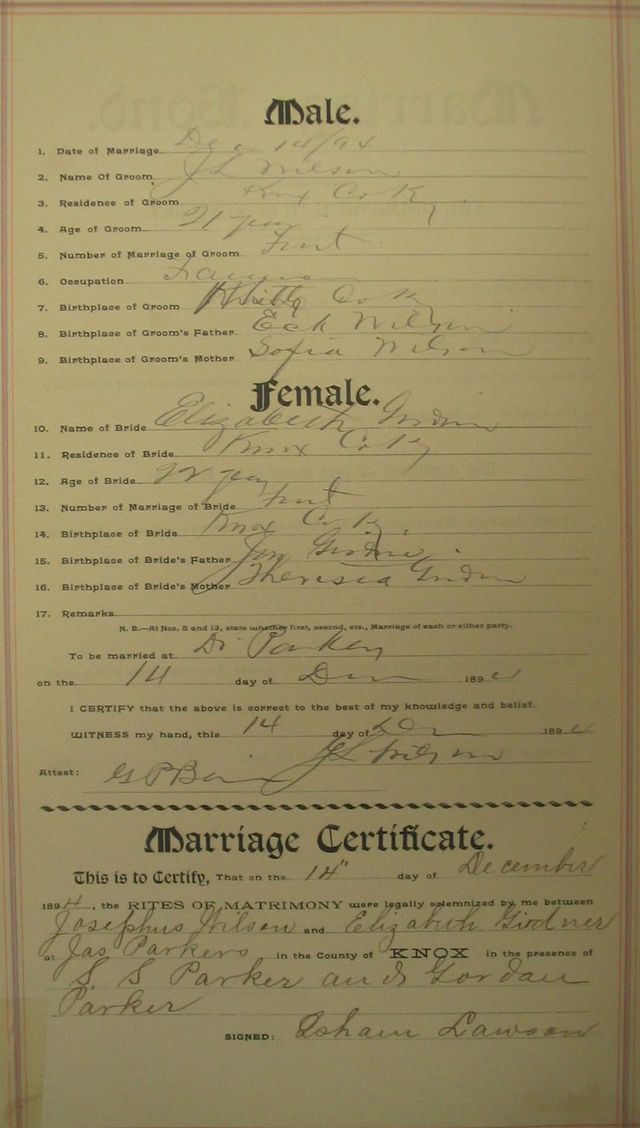 Male.
1. Date of Marriage Dec 14/94
2. Name Of Groom JL Wilson
3. Residence of Groom Knx Co Ky
4. Age of Groom 21 year
5. Number of Marriage of Groom First
6. Occupation Farming
7. Birthplace of Groom Whitly Co Ky
8. Birthplace of Groom's Father Eck Wilson
9. Birthplace of Groom's Mother Sofia Wilson
Female.
10. Name of Bride Elizabeth
11. Residence of Bride Knox Co Ky
12. Age of Bride 22 year
13. Number of Marriage of Bride First
14. Birthplace of Bride Knox Co Ky.
15. Birthplace of Bride's Father
16. Birthplace of Bride's Mother Theresia
17. Remarks
N. B.—At Nos. 5 and 13, state whether first, second, etc., Marriage of each or either party.
To be married at
on the 14 day of Dec 1894
I CERTIFY that the above is correct to the best of my knowledge and belief.
WITNESS my hand, this 14 day of Dec 1894
JL Wilson
Attest:
Marriage Certificate.
This is to Certify, That on the 14" day of December
1894, the RITES OF MATRIMONY were legally solemnized by me between
Josephus Wilson and Elizabeth Girdner
at Jas Parkers in the County of KNOX in the presence of
S. S Parker and Gordan
Parker
SIGNED: Isham Lawson